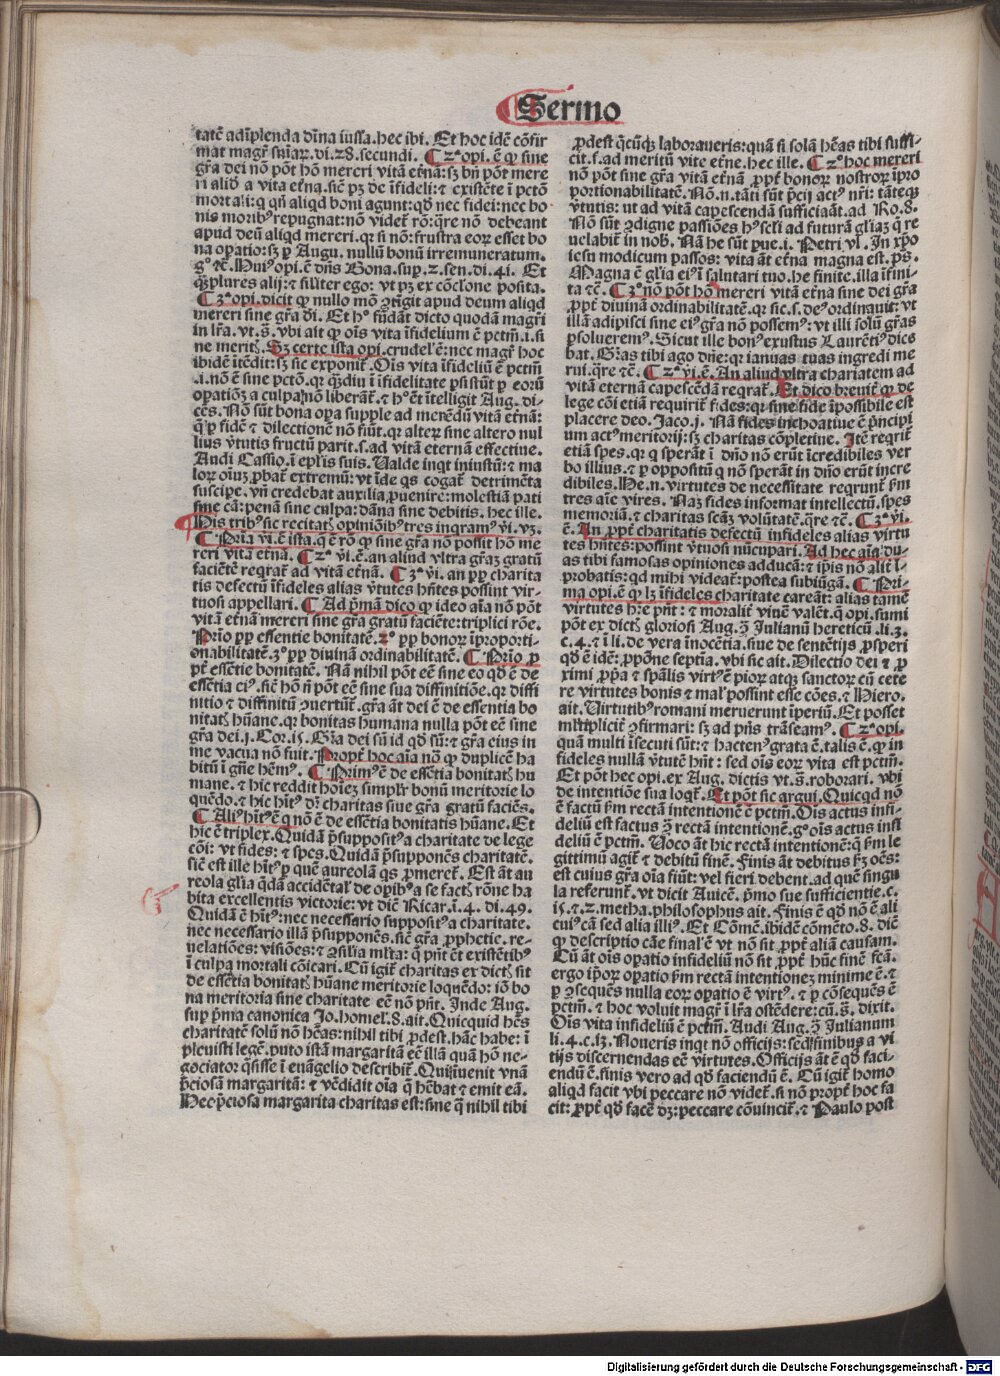 Sermo
tatē adīplenda dīna iussa.hec ibi. Et hoc idē cōfir
mat magr̄ sniaꝝ.di.28.secundi. ¶ 2ª opi.ē ꝙ sine
gr̄a dei nō pōt hō mereri vitā etnā:sꝫ bn̄ pōt mere
ri aliꝗd a vita etna.sic pꝫ de īfideli:⁊ existēte ī pctō
mortali:q qn̄ aliꝗd boni agunt:qđ nec fidei:nec bo
nis morib⁹ repugnat:nō videt᷑ rō:q̄re nō debeant
apud deū aliꝗd mereri.qꝛ si nō:frustra eoꝝ esset bo
na opatio:sꝫ ꝑ Augu. nullū bonū irremuneratum.
g° ⁊c. Hui⁹ opi.ē dn̄s Bona.suꝑ.2.sen.di.41. Et
q̄ꝫplures alij:⁊ sil'iter ego: vt pꝫ ex cōclone posita.
¶ 3ª opi.dicit ꝙ nullo mō ꝯtigit apud deum aliꝗd
mereri sine gr̄a di. Et h° fūdāt dicto quodā magr̄i
in lr̄a. vt.s̄.vbi ait ꝙ oīs vita īfidelium ē pctm̄.i.si
ne merit̄. Sꝫ certe ista opi.crudel'ē:nec magr̄ hoc
ibidē ītēdit:sꝫ sic exponit᷑. Oīs vita īfideliū ē pctm̄
.i.nō ē sine pctō.qꝛ q̄ꝫdiu ī īfidelitate ꝑsistūt ꝑ eorū
opatiōꝫ a culpa nō liberāt᷑.⁊ h°ēt ītelligit Aug. di
cēs. Nō sūt bona oꝑa supple ad merēdū vitā etnā:
q̄ ꝑ fidē ⁊ dilectionē nō fiūt.qꝛ alteꝝ sine altero nul
lius v̄tutis fructū parit.s.ad vitā eternā effectiue.
Audi Cassio.ī epl'is suis. Ualde inqt iniustū:⁊ ma
loꝝ oīuꝫ ꝓbat᷑ extremū: vt īde qs cogat᷑ detrimēta
suscipe.vn̄ credebat auxilia ꝓuenire:molestiā pati
sine cā:penā sine culpa:dāna sine debitis. hec ille.
His trib⁹ sic recitat̄ opiniōib⁹ tres inqram⁹ vi. vꝫ.
¶ Pria vi.ē ista.q ē rō ꝙ sine gr̄a nō possit hō me
reri vitā etnā. ¶ 2ª vi.ē.an aliud vltra gr̄aꝫ gratū
faciētē reqrat᷑ ad vitā etnā. ¶ 3ª vi. an pp̄ charita
tis defectū īfideles alias v̄tutes hn̄tes possint vir-
tuosi appellari. ¶ Ad pmā dico ꝙ ideo aīa nō pōt
vitā etnā mereri sine gr̄a gratū faciēte:triplici rōe.
Prio pp̄ essentie bonitatē. 2° pp̄ bonoꝝ īproporti-
onabilitatē.3° pp̄ diuinā ordinabilitatē. ¶ Prio ꝓ
pt᷑ essētie bonitatē. Nā nihil pōt eē sine eo qđ ē de
essētia ci⁹.sic hō n̄ pōt eē sine sua diffinitiōe.qꝛ diffi
nitio ⁊ diffinitū ꝯuertūt᷑.gr̄a āt dei ē de essentia bo
nitat̄ hūane.qꝛ bonitas humana nulla pōt eē sine
gr̄a dei.j.Cor.15. Gr̄a dei sū id qđ sū:⁊ gr̄a eius in
me vacua nō fuit. Propt᷑ hoc aīa nō ꝙ duplicē ha
bitū ī gn̄e hēm⁹. ¶ Prim⁹ ē de essētia bonitat̄ hu
mane.⁊ hic reddit hoīeꝫ simplr̄ bonū meritorie lo
quēdo.⁊ hic hīt⁹ dr̄ charitas siue gr̄a gratū faciēs.
¶ Ali⁹ hīt⁹ ē q nō ē de essētia bonitatis hūane. Et
hic ē triplex. Quidā p̄supposit⁹ a charitate de lege
cōi: vt fides: ⁊ spes. Quidā p̄supponēs charitatē.
sic est ille hīt⁹ ꝑ quē aureolā qs ꝓmeret᷑. Est āt au
reola gl'ia q̄dā accidētal' de opib⁹ a se fact̄ rōne ha
bita excellentis victorie: vt dic̄ Ricar.ī.4. di.49.
Quidā ē hīt⁹:nec necessario supposit⁹ a charitate.
nec necessario illā p̄supponēs.sic gr̄a ꝓphetie. re-
uelatiōes: visiōes:⁊ ꝯsilia ml'ta: q pn̄t ēt existētib⁹
ī culpa mortali cōicari. Cū igit᷑ charitas ex dict̄ sit
de essētia bonitat̄ hūane meritorie loquēdo: iō bo
na meritoria sine charitate eē nō pn̄t. Inde Aug.
suꝑ pma canonica Jo.homel'.8.ait. Quicquid hēs
charitatē solū nō hēas:nihil tibi ꝓdest.hāc habe: ī
pleuisti legē.puto istā margaritā eē illā quā hō ne-
gociator q̄sisse ī euāgelio describit᷑. Qui īuenit vnā
p̄ciosā margaritā: ⁊ vēdidit oīa q̄ hēbat ⁊ emit eā.
Hec p̄ciosa margarita charitas est:sine q̄ nihil tibi
ꝓdest qcūqꝫ laboraueris:quā si solā hēas tibi suffi-
cit.s.ad meritū vite etne.hec ille. ¶ 2° hoc mereri
nō pōt sine gr̄a vitā etnā ꝓpt᷑ bonoꝝ nostroꝝ īpro
portionabilitatē. Nō.n.tāti sūt p̄cij act⁹ nr̄i: tāteqꝫ
v̄tutis: ut ad vitā capescendā sufficiāāt.ad Ro.8.
Nō sūt ꝯdigne passiōes h⁹ scl'i ad futurā gl'iaꝫ q re
uelabit᷑ in nob̄. Nā he sūt ꝑue.i. Petri vl'. In xp̄o
iesu modicum passos: vita āt etna magna est.ps̄.
Magna ē gl'ia ei⁹ ī salutari tuo.he finite.illa īfini
ta ⁊c. ¶ 3° nō pōt hō mereri vitā etnā sine dei gr̄a
ꝓpt᷑ diuinā ordinabilitatē.qꝛ sic.s.de⁹ ordinauit: vt
illā adipisci sine ei⁹ gr̄a nō possem⁹: vt illi solū gr̄as
ꝑsoluerem⁹. Sicut ille bon⁹ exustus Laurēti⁹ dice
bat. Gr̄as tibi ago dn̄e: qꝛ ianuas tuas ingredi me
rui.q̄re ⁊c. ¶ 2ª vi.ē. An aliud vltra chariatem ad
vitā eternā capescēdā reqrat᷑. Et dico breuit᷑ ꝙ de
lege cōi etiā requirit᷑ fides:qꝛ sine fide īpossibile est
placere deo. Jaco.j. Nā fides inchoatiue ē p̄ncipl
um act⁹ meritorij:sꝫ charitas cōpletiue. Itē reqrit᷑
etiā spes.qꝛ q sperāt ī dn̄o nō erūt īcredibiles ver
bo illius.⁊ ꝑ oppositū q nō sperāt in dn̄o erūt incre
dibiles. He.n. virtutes de necessitate reqrunt᷑ ẜm
tres aīe vires. Naꝫ fides informat intellectū.spes
memoriā.⁊ charitas scaꝫ volūtatē.q̄re ⁊c. ¶ 3ª vi.
ē. An ꝓpt᷑ charitatis defectū infideles alias virtu
tes hn̄tes:possint v̄tuosi nūcupari. Ad hec aīa du-
as tibi famosas opiniones adducā:⁊ īpis nō alit᷑ ī-
probatis:qđ mihi videat᷑:postea subiūgā. ¶ Pri-
ma opi.ē ꝙ lꝫ īfideles charitate careāt: alias tamē
virtutes hr̄e pn̄t : ⁊ moralit᷑ viuē valēt.q opi.sumi
pōt ex dict̄ gloriosi Aug.ꝯ̄ Julianū hereticū.li.3.
c.4.⁊ ī li.de vera īnocētia.siue de sentētijs ꝓsperi
qđ ē idē: ꝓpōne septīa. vbi sic ait. Dilectio dei ⁊ ꝓ
ximi ꝓp̄a ⁊ sp̄alis virt⁹ ē pioꝝ atqꝫ sanctoꝝ cū cete
re virtutes bonis ⁊ mal' possint esse cōes.⁊ Hiero.
ait. Uirtutib⁹ romani meruerunt īperiū. Et posset
ml'tiplicit᷑ ꝯfirmari: sꝫ ad pn̄s trāseam⁹. ¶ 2ª opi.
quā multi īsecuti sūt: ⁊ hacten⁹ grata ē.talis ē.ꝙ in
fideles nullā v̄tutē hn̄t : sed oīs eoꝝ vita est pctm̄.
Et pōt hec opi.ex Aug. dictis vt.s̄.roborari. vbi
de intentiōe sua loqt᷑. Et pōt sic argui. Quicqd nō
ē factū ẜm rectā intentionē ē pctm̄. Oīs actus infi-
deliū est factus ꝯ̄ rectā intentionē.g° oīs actus infi
deliū ē pctm̄. Uoco āt hic rectā intentionē:q ẜm le
gittimū agit᷑ ⁊ debitū finē. Finis āt debitus ẜm oēs:
est cuius gr̄a oīa fiūt: vel fieri debent.ad quē singu
la referunt᷑. vt dicit Auicē. p̄mo sue sufficientie.c.
15.⁊.2.metha.philosophus ait. Finis ē qđ nō ē ali
cui⁹ cā sed alia illi⁹. Et Cōmē.ibidē cōmēto.8. dic̄
ꝙ descriptio cāe final' ē vt nō sit ꝓpt᷑ aliā causam.
Cū āt oīs opatio infideliū nō sit ꝓpt᷑ hūc finē fcā.
ergo īpoꝝ opatio ẜm rectā intentioneꝫ minime ē.⁊
ꝑ ꝯsequēs nulla eoꝝ opatio ē virt⁹.⁊ ꝑ cōsequēs ē
pctm̄.⁊ hoc voluit magr̄ ī lr̄a ostēdere:cū.s̄. dixit.
Oīs vita infideliū ē pctm̄. Audi Aug.ꝯ̄ Julianum
li.4.c.13. Noueris inqt nō officijs:sed finibus a vi
tijs discernendas eē virtutes. Officijs āt ē qđ faci-
endū ē.finis vero ad qđ faciendū ē. Cū igit᷑ homo
aliqd facit vbi peccare nō videt᷑.si nō propt᷑ hoc fa
cit: ꝓpt᷑ qđ facē dꝫ:peccare cōuincit᷑.⁊ Paulo post
Digitalisierung gefördert durch die Deutsche Forschungsgemeinschaft - DFG